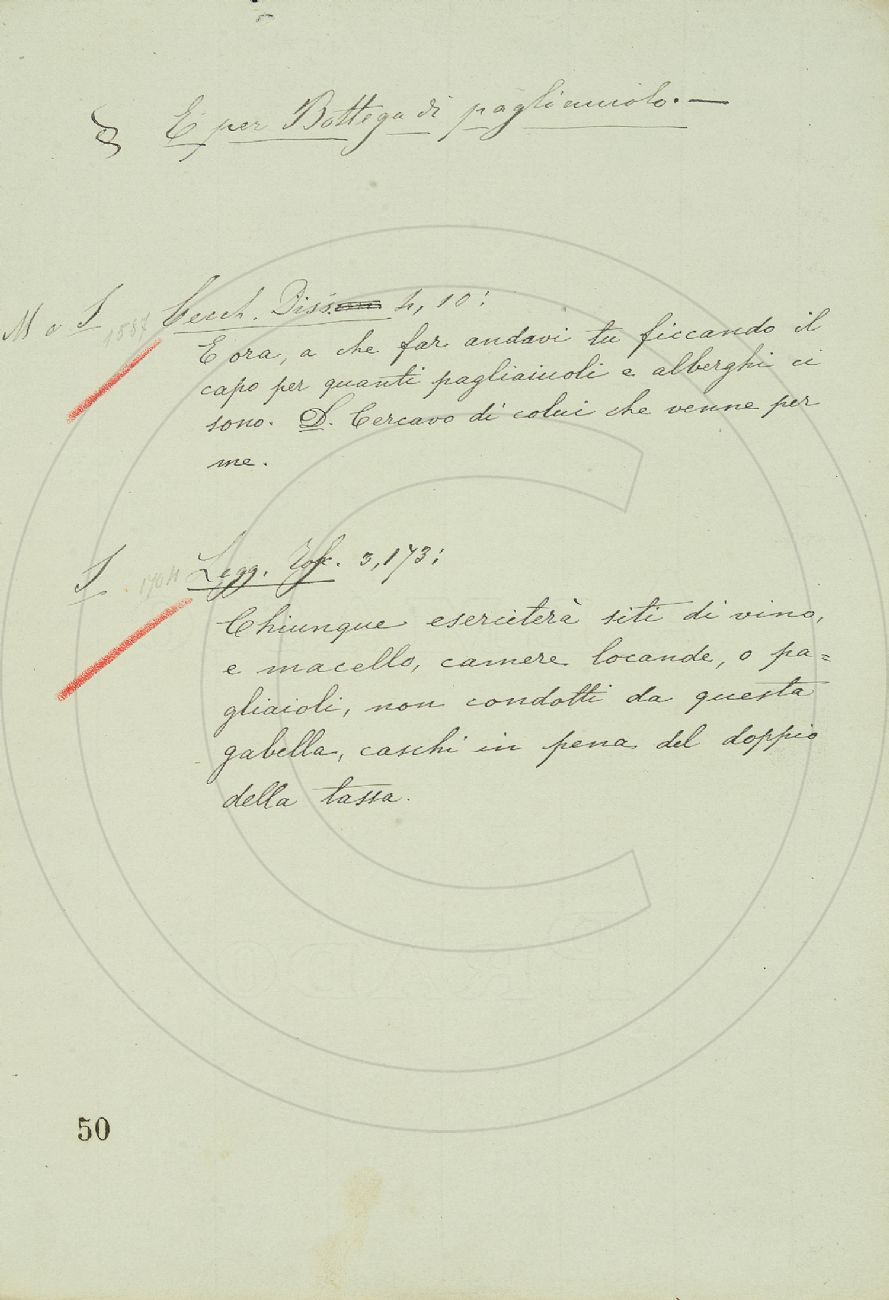 § E per Bottega di pagliaiuolo. —
M e S 1587 Cecch. Diss. 4, 10:
E ora, a che far andavi tu ficcando il
capo per quanti pagliaiuoli e alberghi ci
sono. D. Cercavo di colui che venne per
me.
S 1704 Legg. Tosc. 3, 173:
Chiunque esercitterà siti di vino,
e macello, camere locande, o pa=
gliaioli, non condotti da questa
gabella, caschi in pena del doppio
della tassa.
50